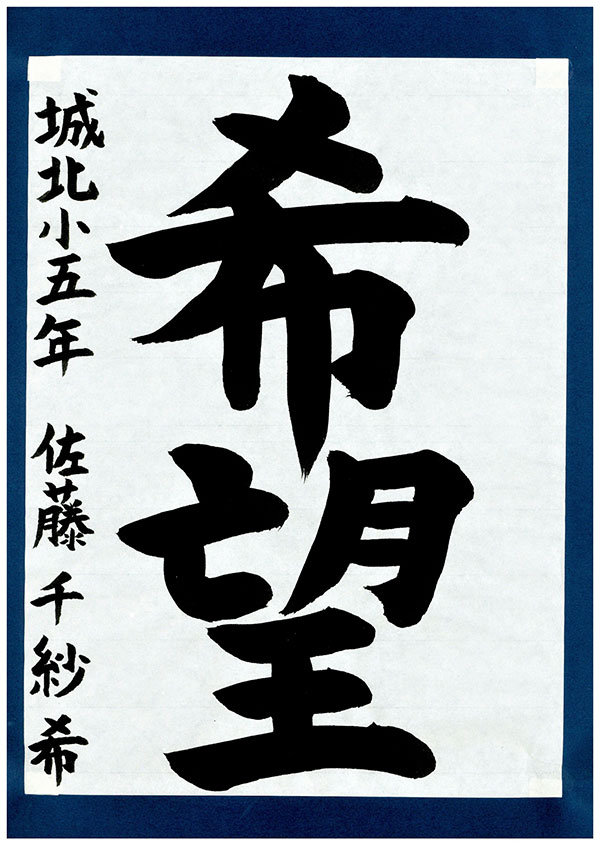 希望
城北小五年 佐藤千紗希